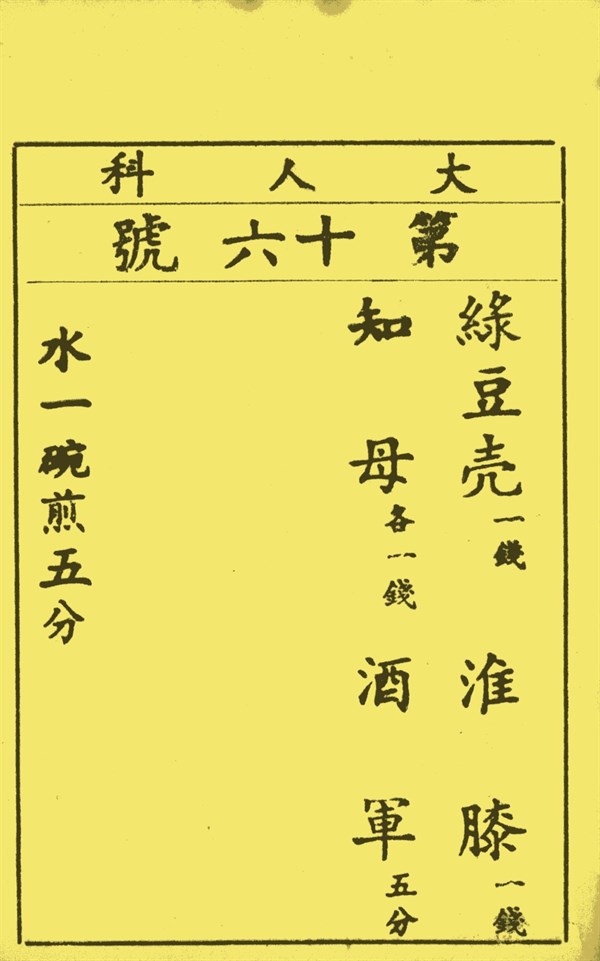 大人科
第十六號
綠豆壳一錢 淮膝一錢
知母各一錢 酒軍五分
水一碗煎五分